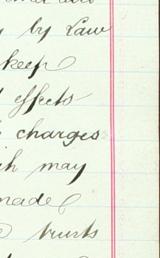 by Law
keep
effects
charges
may
made
trusts